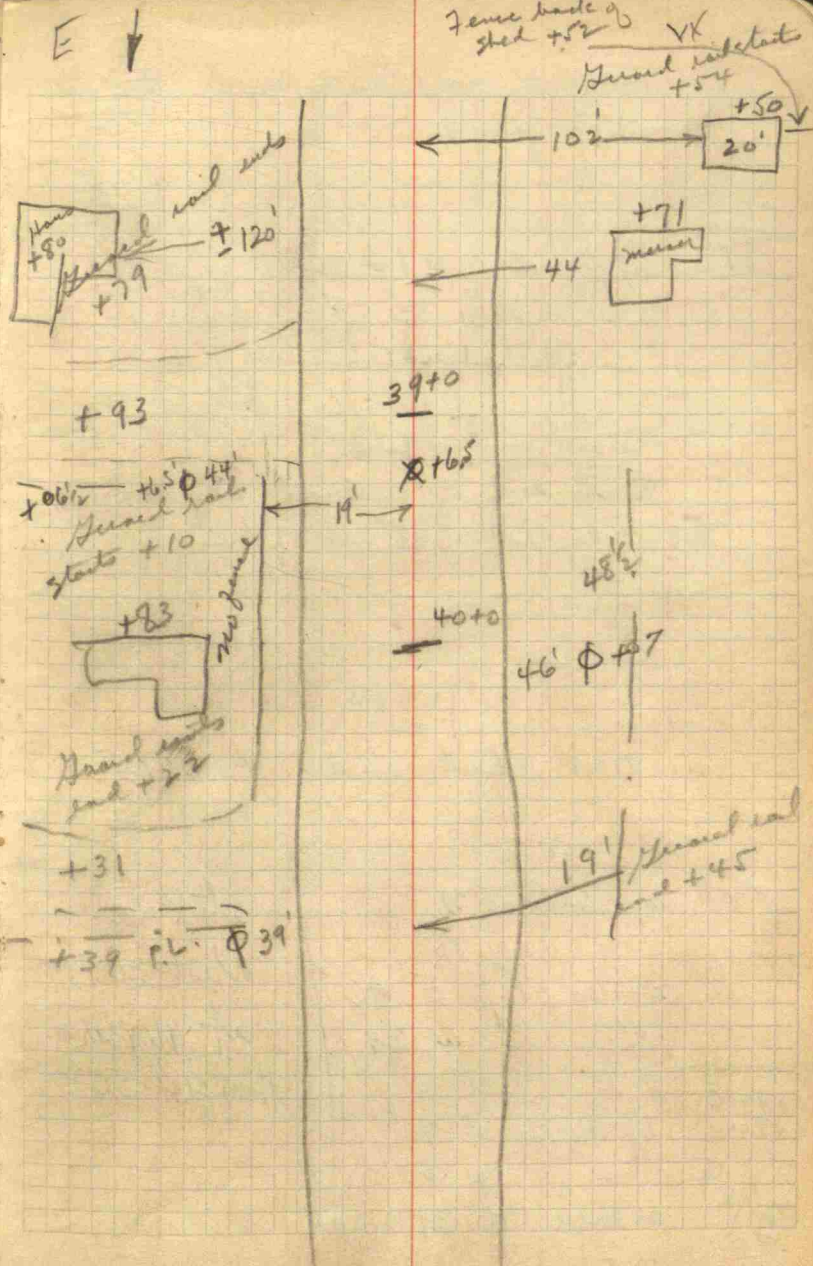 E
Fence back of
shed +52
VX
Guard rail starts
+54
+50
102'
20'
Guard rail ends
House
+80
+79
± 120'
+71
44
39+0
+93
+65
+06½
+65' ϕ 44'
Guard rails
starts +10
19'
48½'
No fence
+83
40+0
46' ϕ +07
Guard rails
end +22
+31
19'
Guard rail
end +45
+39 P.L. ϕ 39'